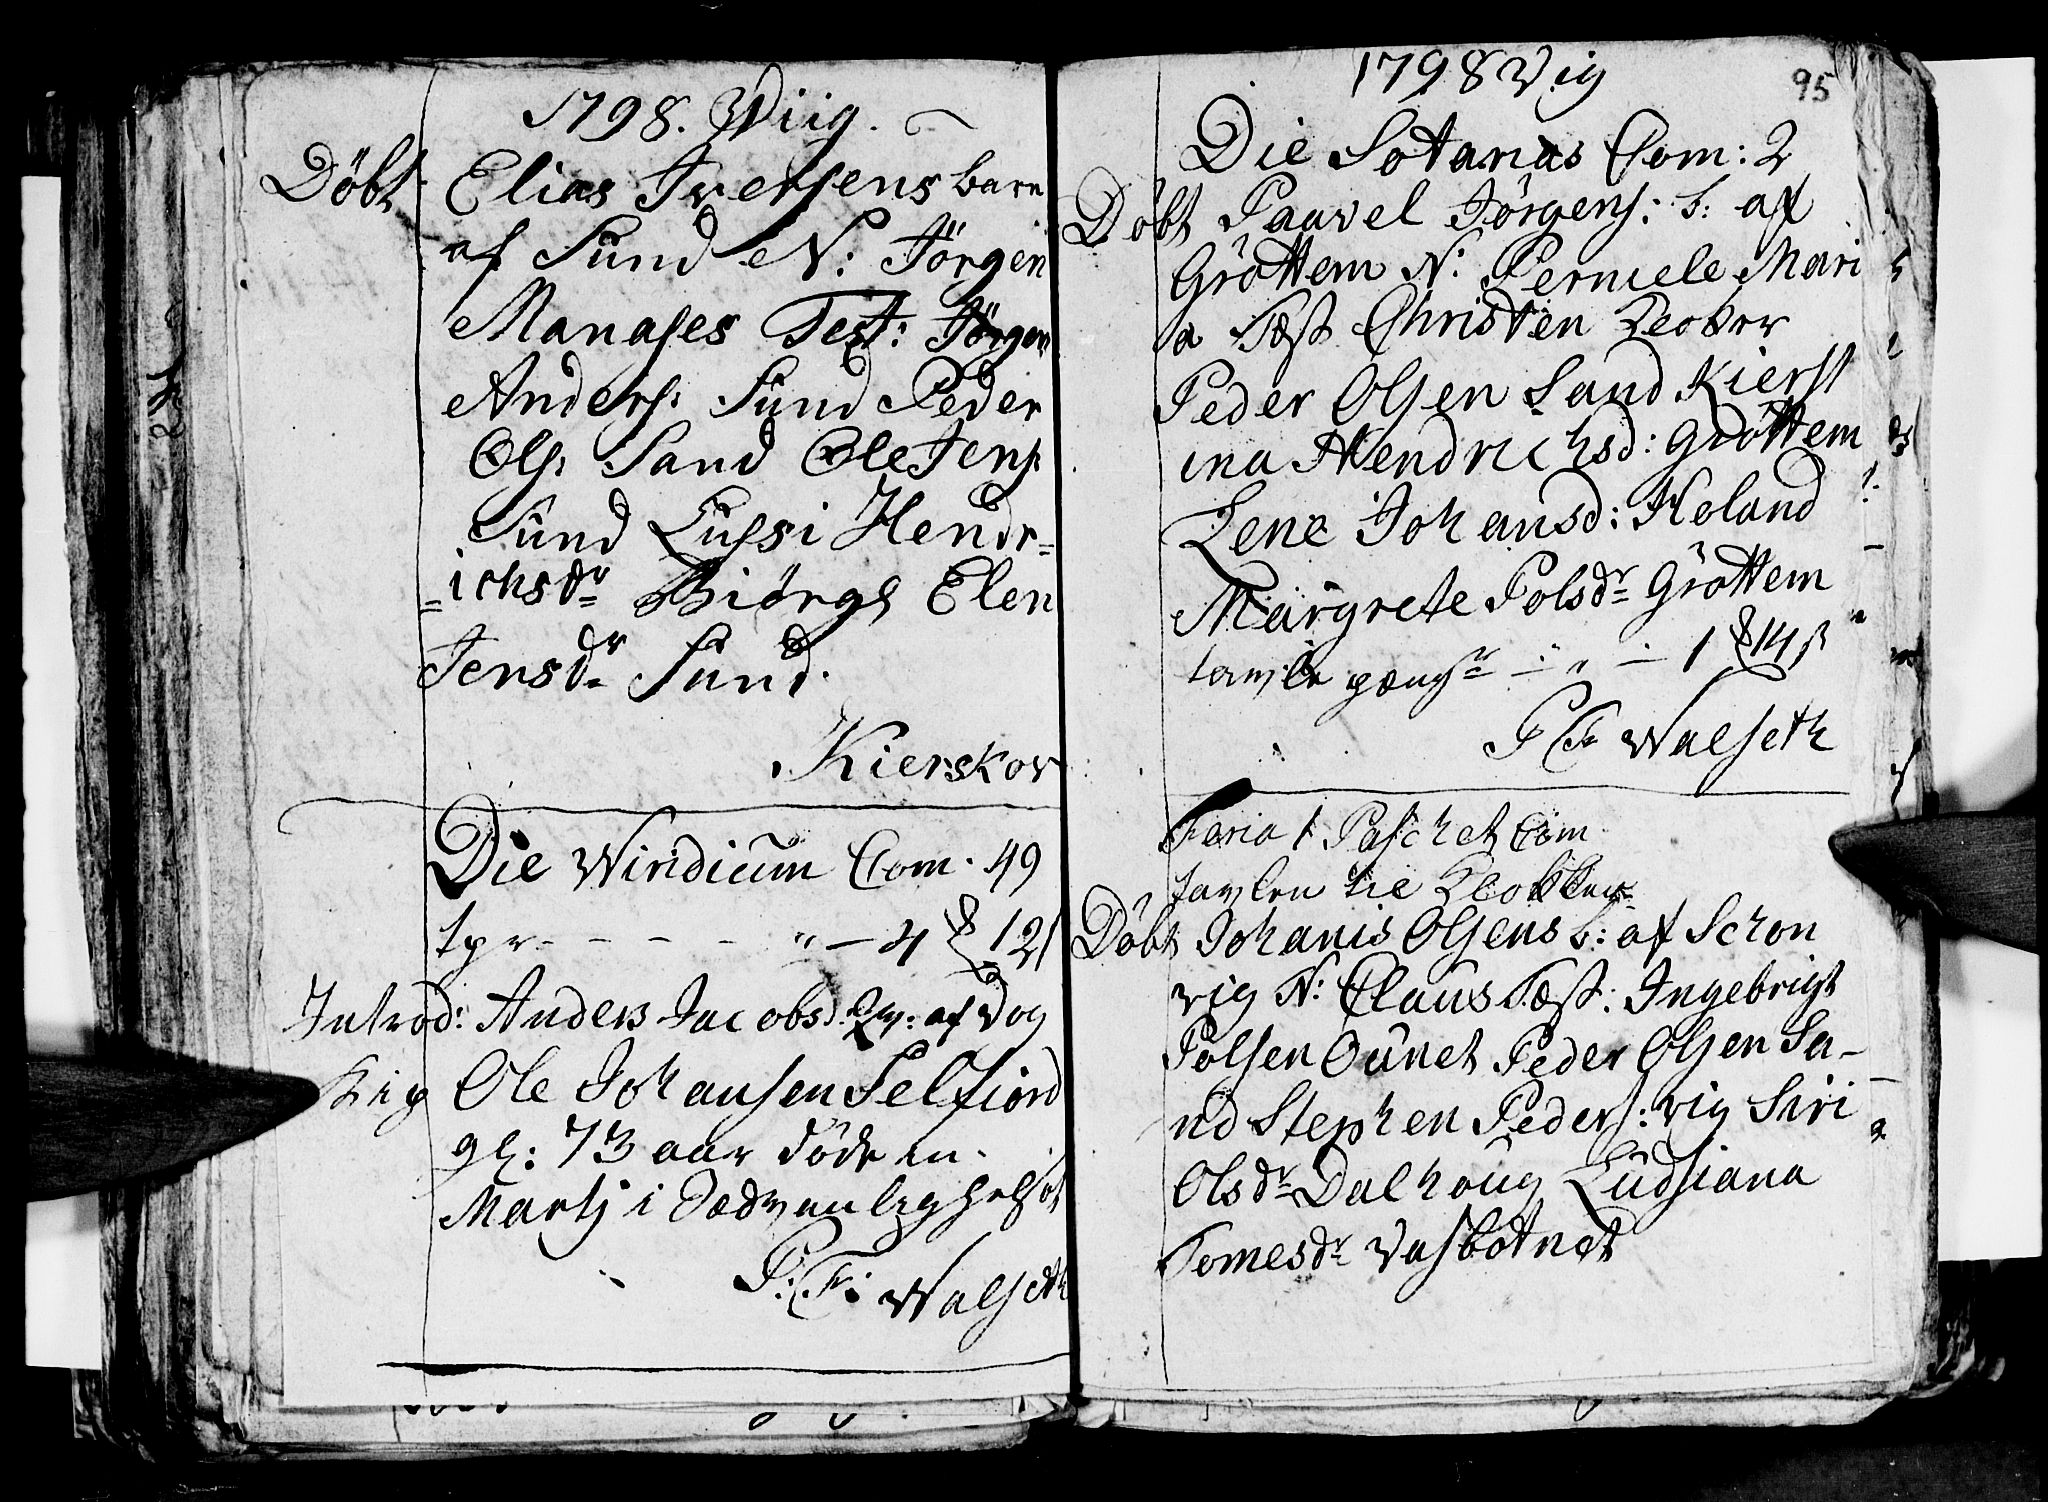 1798. Wiig.
Döbt Elias Iversens barn
af Sund N: Jörgen
Manases Test: Jörgen
Anders: Sund Peder
Ols: Sand Ole Jens:
Sund Lussi Hendr=
=ichsdr Biörge Elen
Jensdr Sund.
Kierskov
Die Wiridium Com. 49
tpr - - - - " - 4 12
Introd: Anders Jacobs Qv: af Vog
Lig Ole Johansen Selfiord
gl: 73 aar döde in
Martj i
P: F: Walseth
1798 Vig
95
Die Sotanas Com: 2
Döbt Paavel Jörgens: b: af
Gröttem N: Perniele Mari
a Tæst Christen Klokker
Peder Olsen Sand Kierst
ina Hendrichsd: Gröttem
Lene Johansd: Holand
Margrete Polsdr Gröttem
tavle pænge - " - 1 14 s
P F Walseth
Feria 1 Paschet Com
tavlen til Klokken
Döbt Johanis Olsens b: af Schon
vig N: Claus Tæst: Ingebrigt
Polsen Ounet Peder Olsen Sa-
nd Stephen Peders: vig Siri
Olsdr Dalhoug Ludsiana
Tomesdr Vasbotnet